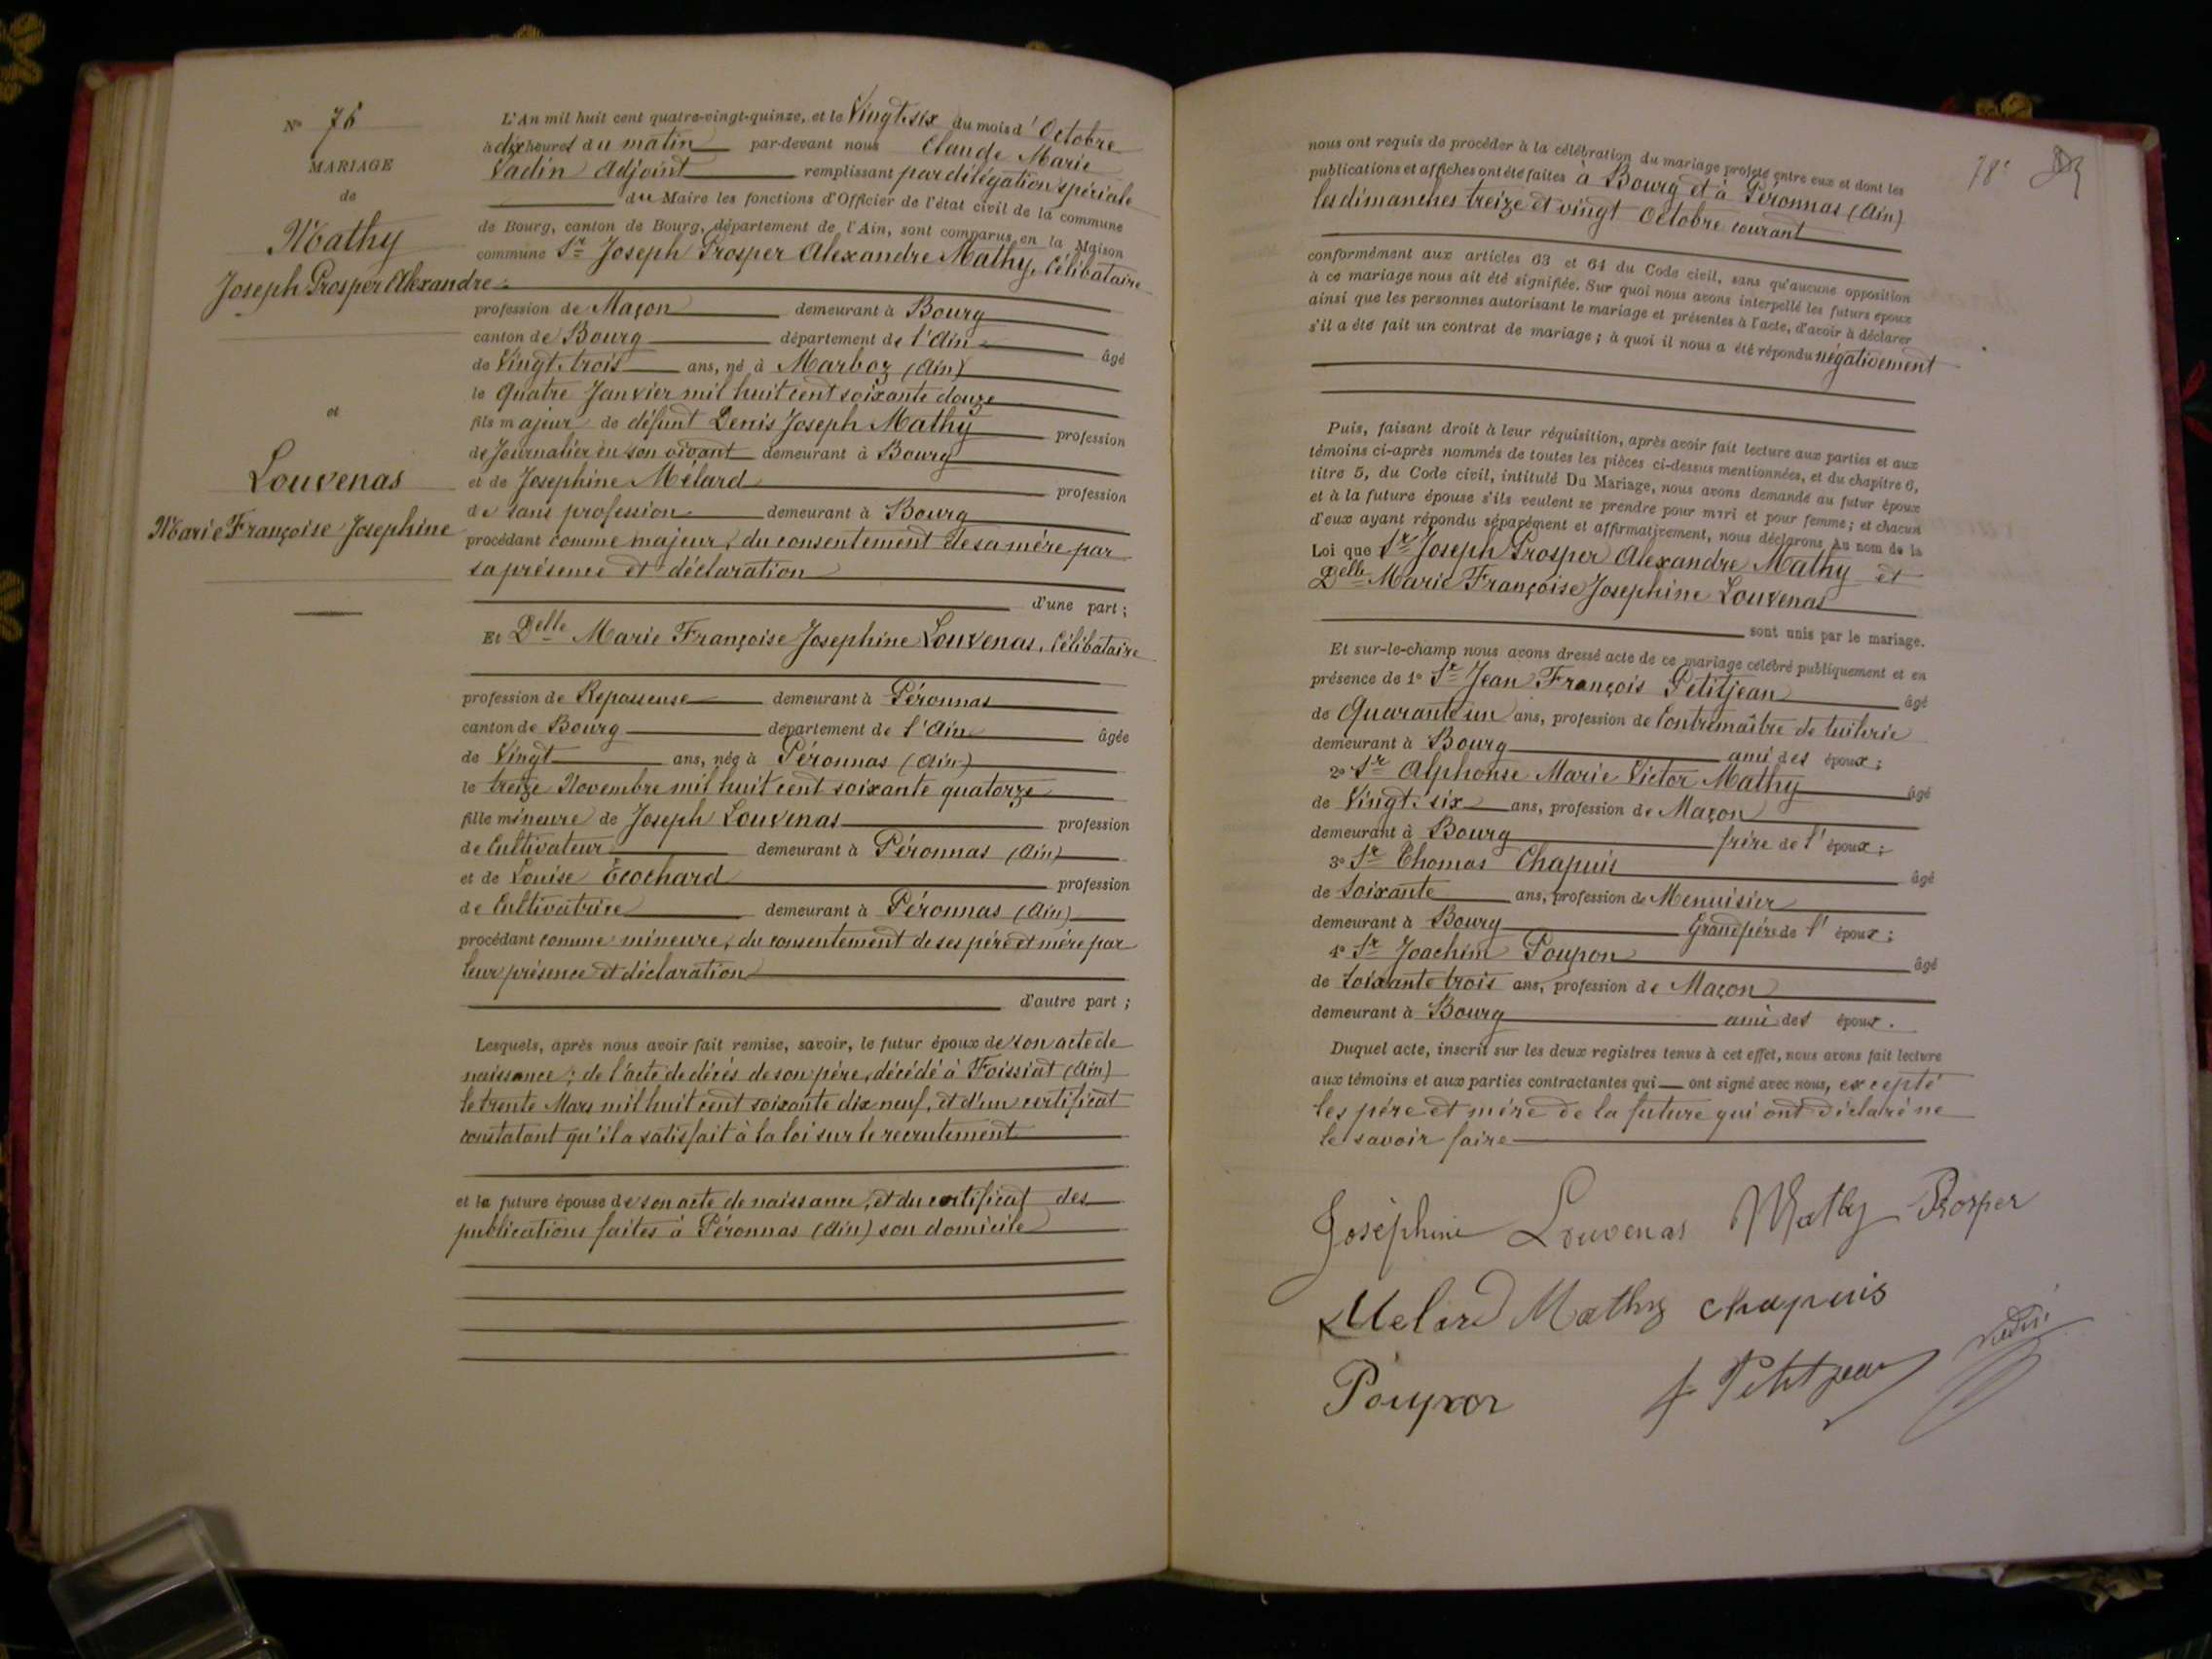 N° 76
MARIAGE
de
Mathy
Joseph Prosper Alexandre
et
Louvenas
Marie Françoise Josephine
L'An mil huit cent quatre-vingt-quinze, et le Vingt-six du mois d'Octobre
à dix heures du matin par-devant nous Claude Marie
Vadin Adjoint remplissant par délégation spéciale
du Maire les fonctions d'Officier de l'état civil de la commune
de Bourg, canton de Bourg, département de l'Ain, sont comparus en la Maison
commune Sr Joseph Prosper Alexandre Mathy, Célibataire
profession de Maçon demeurant à Bourg
canton de Bourg département de l'Ain âgé
de Vingt-trois ans, né à Marboz (Ain)
le Quatre Janvier mil huit cent soixante douze
fils majeur de défunt Denis Joseph Mathy profession
de Journalier en son vivant demeurant à Bourg
et de Josephine Mélard profession
de sans profession demeurant à Bourg
procédant comme majeur, du consentement de sa mère par
sa présence et déclaration
d'une part ;
Et Delle Marie Françoise Josephine Louvenas, Célibataire
profession de Repasseuse demeurant à Péronnas
canton de Bourg département de l'Ain âgée
de Vingt ans, née à Péronnas (Ain)
le treize Novembre mil huit cent soixante quatorze
fille mineure de Joseph Louvenas profession
de Cultivateur demeurant à Péronnas (Ain)
et de Louise Ecochard profession
de Cultivatrice demeurant à Péronnas (Ain)
procédant comme mineure, du consentement de ses père et mère par
leur présence et déclaration
d'autre part ;
Lesquels, après nous avoir fait remise, savoir, le futur époux de son acte de
naissance ; de l'acte de décès de son père, décédé à Foissiat (Ain)
le trente Mars mil huit cent soixante dix neuf, et d'un certificat
constatant qu'il a satisfait à la loi sur le recrutement
et la future épouse de son acte de naissance, et du certificat des
publications faites à Péronnas (Ain) son domicile
78e
nous ont requis de procéder à la célébration du mariage projeté entre eux et dont les
publications et affiches ont été faites à Bourg et à Péronnas (Ain)
les dimanches treize et vingt Octobre courant
conformément aux articles 63 et 64 du Code civil, sans qu'aucune opposition
à ce mariage nous ait été signifiée. Sur quoi nous avons interpellé les futurs époux
ainsi que les personnes autorisant le mariage et présentes à l'acte, d'avoir à déclarer
s'il a été fait un contrat de mariage ; à quoi il nous a été répondu négativement
Puis, faisant droit à leur réquisition, après avoir fait lecture aux parties et aux
témoins ci-après nommés de toutes les pièces ci-dessus mentionnées, et du chapitre 6,
titre 5, du Code civil, intitulé Du Mariage, nous avons demandé au futur époux
et à la future épouse s'ils veulent se prendre pour mari et pour femme ; et chacun
d'eux ayant répondu séparément et affirmativement, nous déclarons Au nom de la
Loi que Sr Joseph Prosper Alexandre Mathy et
Delle Marie Françoise Josephine Louvenas
sont unis par le mariage.
Et sur-le-champ nous avons dressé acte de ce mariage célébré publiquement et en
présence de 1° Sr Jean François Petitjean âgé
de Quarante un ans, profession de Contremaître de tuilerie
demeurant à Bourg ami des époux ;
2° Sr Alphonse Marie Victor Mathy âgé
de Vingt-six ans, profession de Maçon
demeurant à Bourg frère de l'époux ;
3° Sr Thomas Chapuis âgé
de soixante ans, profession de Menuisier
demeurant à Bourg Grand père de l'époux ;
4° Sr Joachim Poupon âgé
de soixante trois ans, profession de Maçon
demeurant à Bourg ami des époux.
Duquel acte, inscrit sur les deux registres tenus à cet effet, nous avons fait lecture
aux témoins et aux parties contractantes qui ont signé avec nous, excepté
les père et mère de la future qui ont déclaré ne
le savoir faire
Joséphine Louvenas Mathy Prosper
Melard Mathy Chapuis
Poupon Petitjean